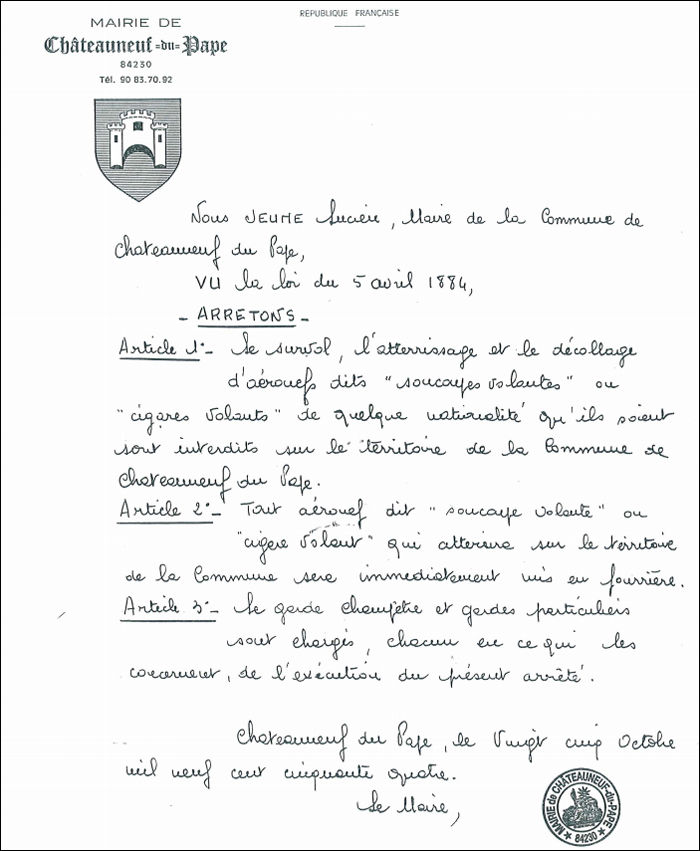 REPUBLIQUE FRANÇAISE
MAIRIE DE
Châteauneuf-du-Pape
84230
Tél. 90 83.70.92
Nous JEUNE Lucien, Maire de la Commune de
Chateauneuf du Pape,
VU la loi du 5 avril 1884,
- ARRETONS -
Article 1°- Le survol, l'atterrissage et le décollage
d'aéronefs dits "soucoupes volantes" ou
"cigares volants" de quelque nationalité qu'ils soient
sont interdits sur le territoire de la Commune de
Chateauneuf du Pape.
Article 2°- Tout aéronef dit "soucoupe volante" ou
"cigare volant" qui atterrira sur le territoire
de la Commune sera immediatement mis en fourrière.
Article 3°- Le garde champêtre et gardes particuliers
sont chargés, chacun en ce qui les
concernent, de l'exécution du présent arrêté.
Chateauneuf du Pape, le Vingt cinq Octobre
mil neuf cent cinquante quatre.
Le Maire,
MAIRIE de CHÂTEAUNEUF-du-PAPE
★ 84230 ★